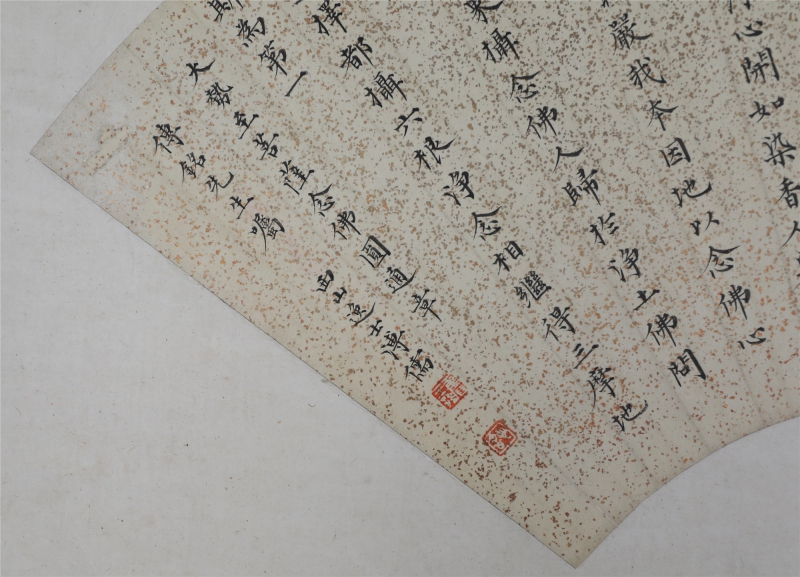 淨心開如染香人
嚴我本因地以念佛心
界攝念佛人歸於淨土佛問
擇都攝六根淨念相繼得三摩地
斯為第一
大勢至菩薩念佛圓通章
傳銘先生囑
西山逸士溥儒